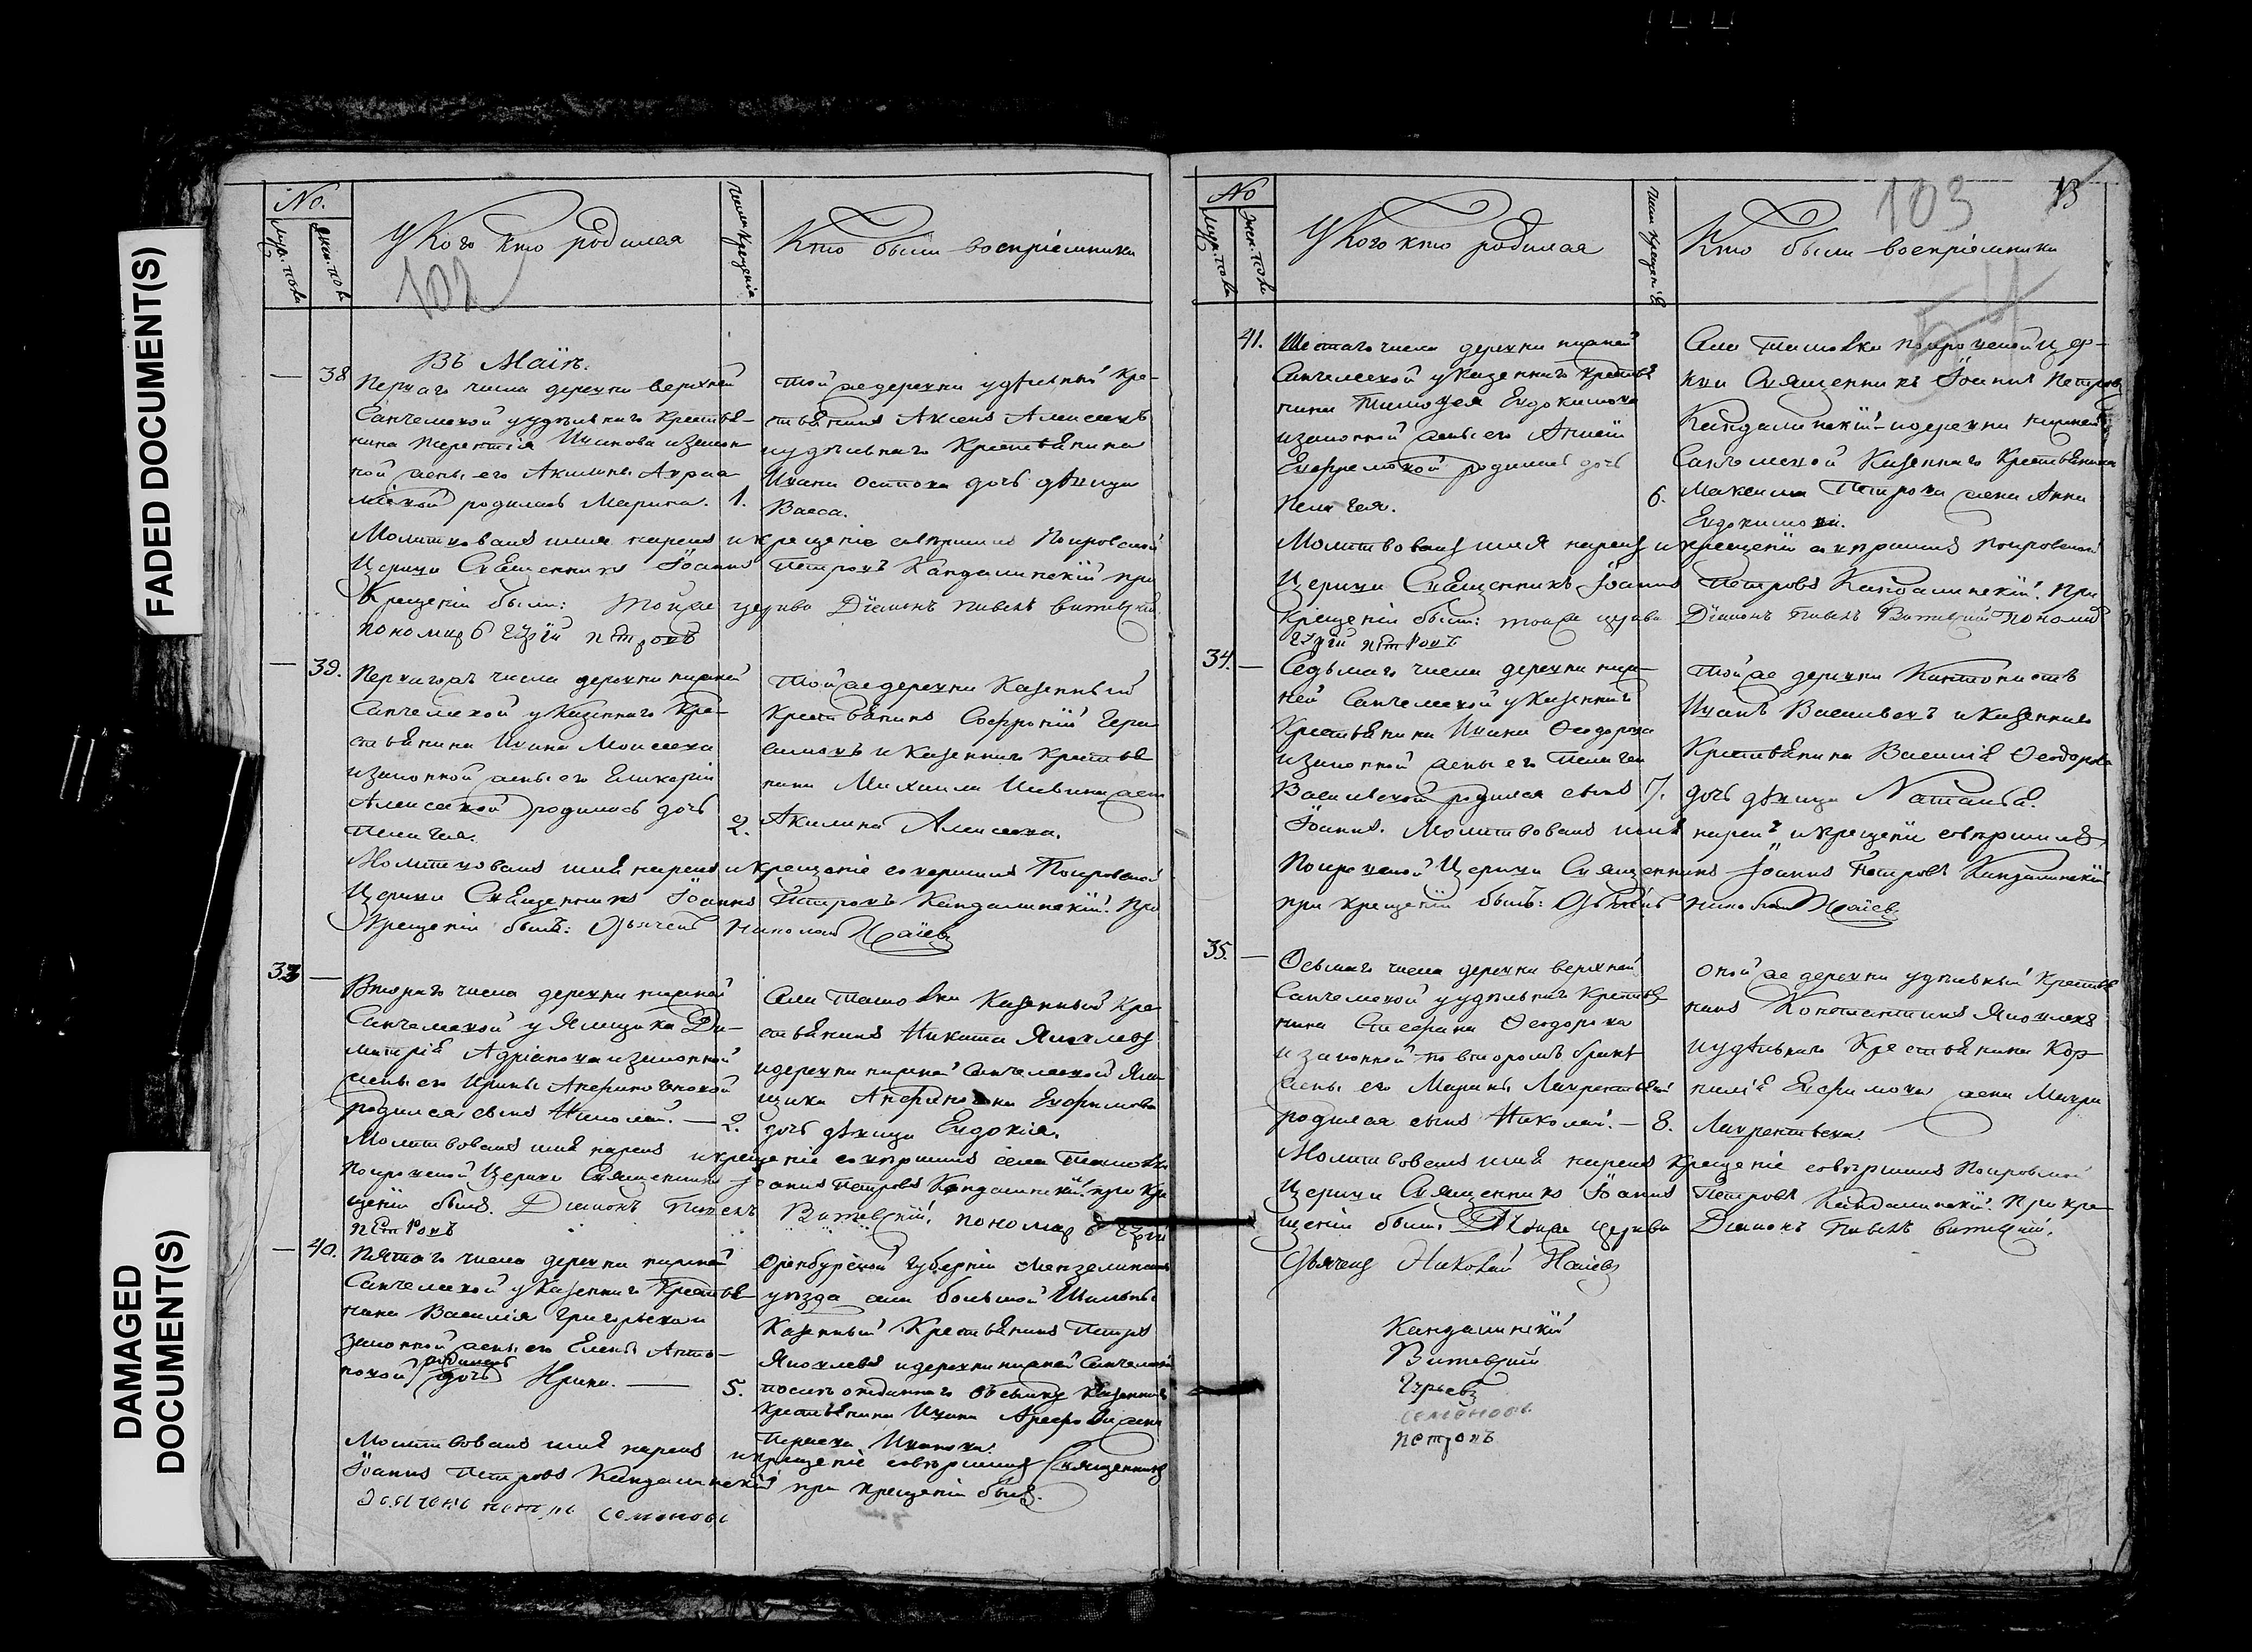 FADED DOCUMENT(S)
DAMAGED
DOCUMENT(S)
No.
Муж. пола
Жен. пола
У Кого кто родился
Числа крещенія
Кто были воспріемники
102
Въ Маiѣ.
38
Перваго числа деревни верхней
Санчелеевой у удѣльнаго крестья-
нина Иванова и закон-
ной жены его Акилины
родилась Марина. 1.
Той же деревни удѣльный кре-
стьянинъ Алексеевъ
и удѣльнаго Крестьянина
Ивана Осипова дочь дѣвица
Васса.
Молитвовалъ имя нарекъ и крещеніе совершилъ Покровской
Церкви Священникъ Іоаннъ Петровъ Кандалинскій при
Крещеніи были: тойже церкви Діаконъ Павелъ Витевский
пономарь Гурій петровъ
39.
Перваго числа деревни нижней
Санчелеевой у Казеннаго Кре-
стьянина Ивана Моисеева
и законной жены его Гликеріи
Алексеевой родилась дочь
Пелагея. 2.
Той же деревни Казенный
Крестьянинъ Софроній Гера-
симовъ и Казеннаго Крестья
нина Михаила жена
Акилина Алексеева.
Молитвовалъ имя нарекъ и крещеніе совершилъ Покровской
Церкви Священникъ Іоаннъ Петровъ Кандалинскій. При
Крещеніи былъ: Дьячекъ Николай
33
Втораго числа деревни нижней
Санчелеевой у Ямщика Ди-
митрія Адріанова и законной
жены его Ирины
родился сынъ Николай. — 2.
Села Ташовки Казенный Кре
стьянинъ Никита Яковлевъ
и деревни нижней Санчелеевой Ям
щика Ефимова
дочь дѣвица Евдокія.
Молитвовалъ имя нарекъ и крещеніе совершилъ села Ташовки
Покровской Церкви Священникъ Іоаннъ Петровъ Кандалинскій. при Кре
щеніи былъ. Діаконъ Павелъ Витевскій, пономарь Гурій
петровъ
40.
Пятаго числа деревни нижней
Санчелеевой у Казеннаго Крестья
нина Василія Григорьева и
законной жены его Елены Анто-
новой родилась дочь Ирина. — 5.
Оренбургской Губерніи Мензелинскаго
уѣзда села большой Шильны
Казенный Крестьянинъ Петръ
Яковлевъ и деревни нижней Санчелеевой
Казеннаго
Крестьянина Ивана жена
Ивановна.
Молитвовалъ имя нарекъ и крещеніе совершилъ Священникъ
Іоаннъ Петровъ Кандалинскій при крещеніи былъ.
семеновъ
No
Муж. пола
Жен. пола
У Кого кто родился
Числа крещенія
Кто были воспріемники
103
13
54
41.
Шестаго числа деревни нижней
Санчелеевой у Казеннаго Крестья
нина Тимофея Евдокимова
и законной жены его
Ефремовой родилась дочь
Пелагея. 6.
Села Ташовки Покровской цер-
кви Священникъ Іоаннъ Петровъ
Кандалинскій и деревни нижней
Санчелеевой Казеннаго Крестьянина
Максима Петрова жена Анна
Евдокимова.
Молитвовалъ имя нарекъ и крещеніе совершилъ Покровской
Церкви Священникъ Іоаннъ Петровъ Кандалинскій. При
Крещеніи были: тойже церкви Діаконъ Павелъ Витевскій Пономарь
Гурій петровъ
34.
Седьмаго числа деревни ниж-
ней Санчелеевой у Казеннаго
Крестьянина Ивана Ѳеодорова
и законной жены его Пелагеи
Васильевой родился сынъ 7.
Той же деревни Кантонистъ
Иванъ Васильевъ и Казеннаго
Крестьянина Василія Ѳеодорова
дочь дѣвица Наталья.
Іоаннъ. Молитвовалъ имя нарекъ и крещеніе совершилъ
Покровской Церкви Священникъ Іоаннъ Петровъ Кандалинскій
при крещеніи былъ: Дьячекъ Николай
35.
Осьмаго числа деревни верхней
Санчелеевой у удѣльнаго Крестья
нина Стефана Ѳеодорова
и законной по второмъ бракѣ
жены его Марины Лаврентьевой
родился сынъ Николай. — 8.
Оной же деревни удѣльный Крестья
нинъ Константинъ Яковлевъ
и удѣльнаго Крестьянина Кор-
нилія Ефимова жена
Лаврентьева.
Молитвовалъ имя нарекъ крещеніе совершилъ Покровской
Церкви Священникъ Іоаннъ Петровъ Кандалинскій. При кре
щеніи были: Тойже Церкви Діаконъ Павелъ витевскій.
Дьячекъ Николай
Кандалинскій
Витевский
Гурьевъ
семеновъ
петровъ